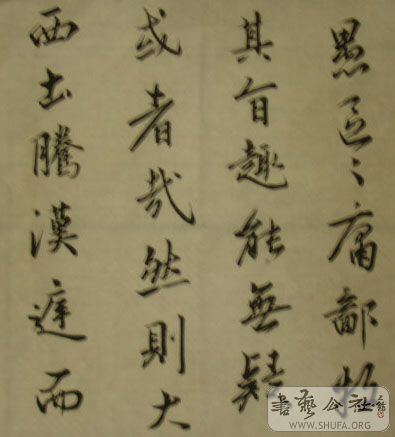 愚區々庸鄙投
其旨趣能無疑
或者哉然則大
西土騰漢庭而
書藝公社
WWW.SHUFA.ORG